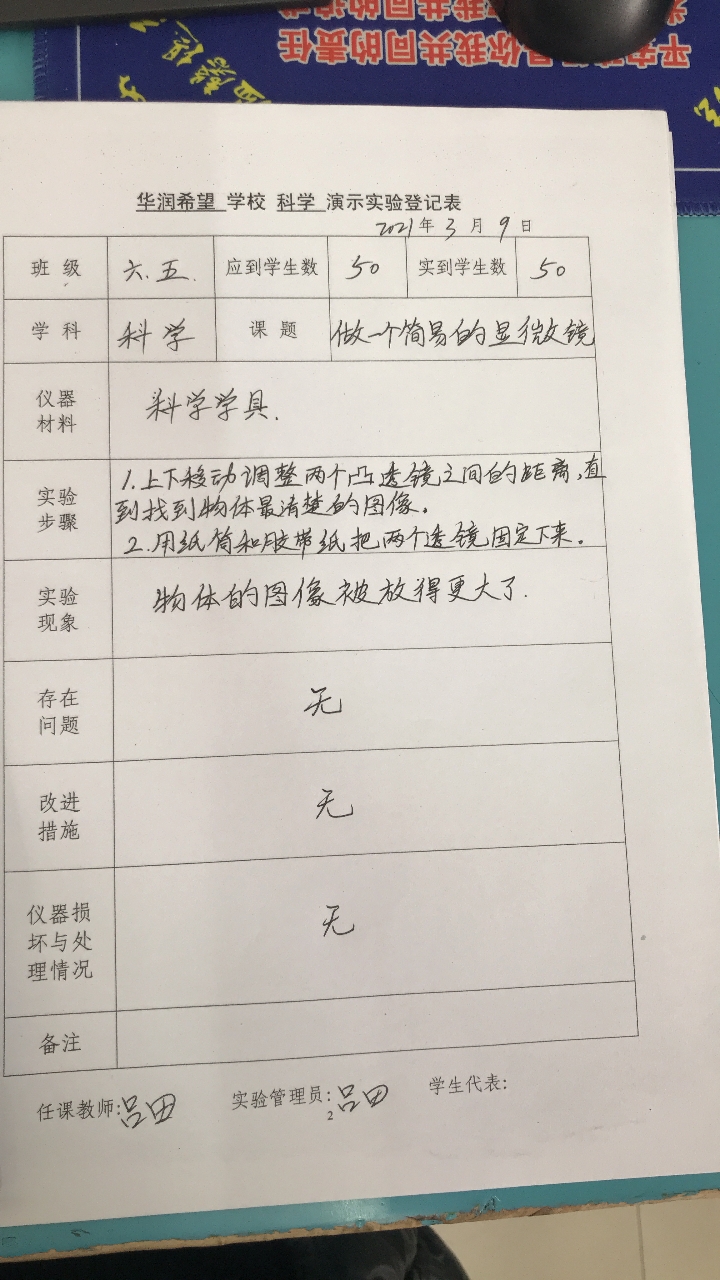 平安建设是你我共同的责任
华润希望 学校 科学 演示实验登记表
2021年3月9日
班级 六.五. 应到学生数 50 实到学生数 50
学科 科学 课题 做一个简易的显微镜
仪器材料 科学学具.
实验步骤
1.上下移动调整两个凸透镜之间的距离,直
到找到物体最清楚的图像。
2.用纸筒和胶带纸把两个透镜固定下来。
实验现象 物体的图像被放得更大了.
存在问题 无
改进措施 无
仪器损坏与处理情况 无
备注
任课教师:吕田 实验管理员:吕田 学生代表:
2